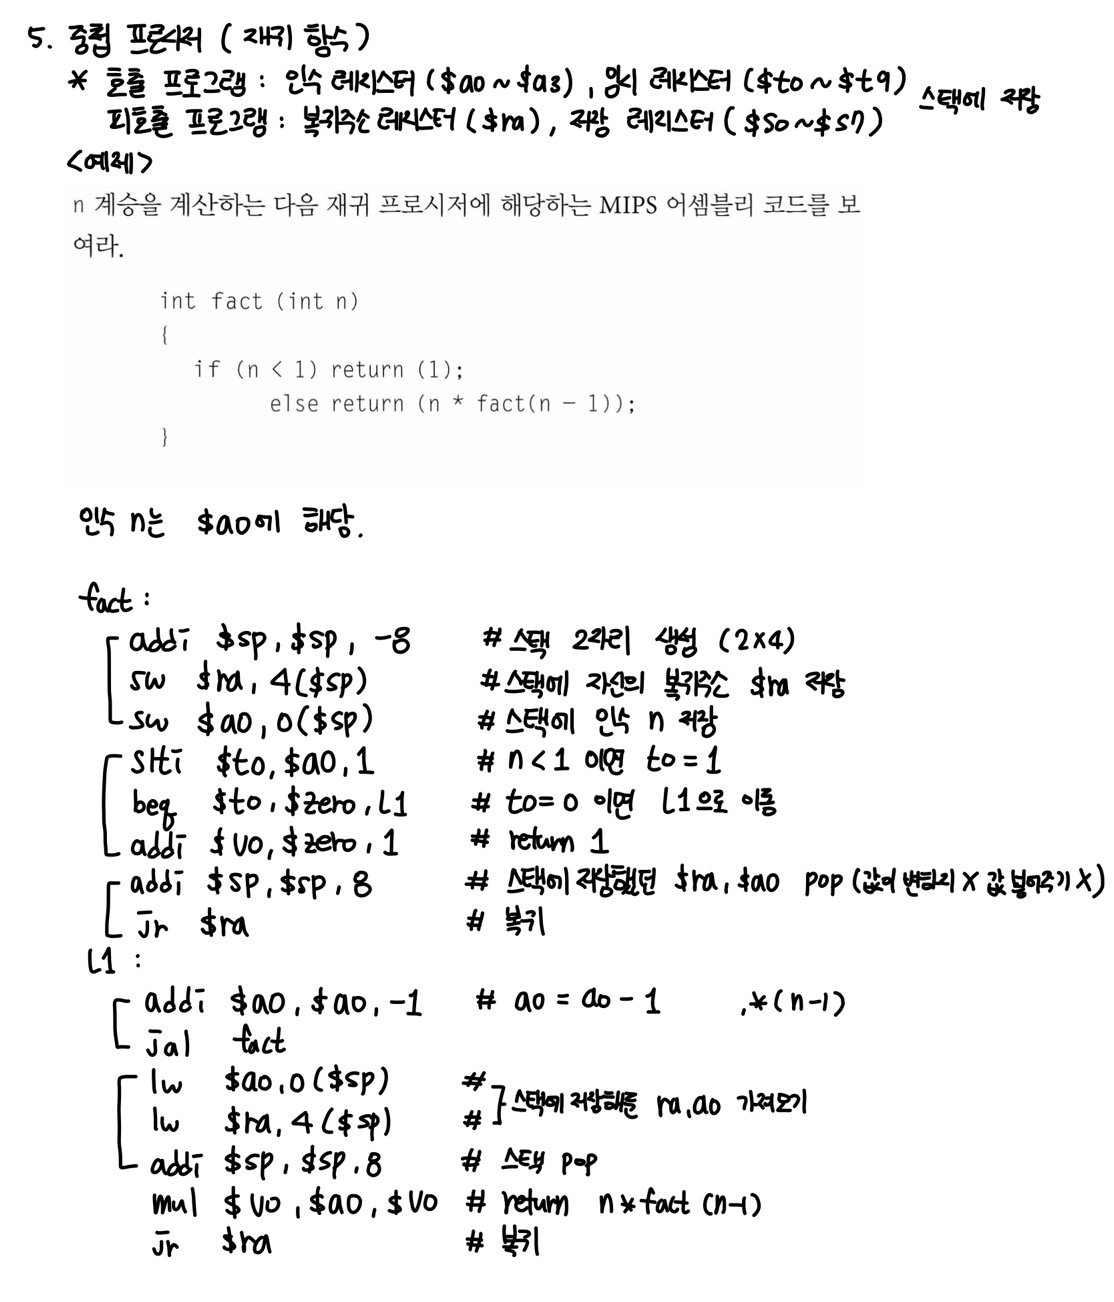 5. 중첩 프로시저 ( 재귀 함수 )
* 호출 프로그램 : 인수 레지스터 ($a0 ~ $a3) , 임시 레지스터 ($t0 ~ $t9) 스택에 저장
피호출 프로그램 : 복귀주소 레지스터 ( $ra ), 저장 레지스터 ( $s0 ~ $s7 )
<예제>
n 계승을 계산하는 다음 재귀 프로시저에 해당하는 MIPS 어셈블리 코드를 보
여라.
int fact (int n)
{
if (n < 1) return (1);
else return (n * fact(n – 1));
}
인수 n는 $a0에 해당.
fact :
addi $sp, $sp, -8 # 스택 2자리 생성 (2x4)
sw $ra, 4($sp) # 스택에 자신의 복귀주소 $ra 저장
sw $a0, 0($sp) # 스택에 인수 n 저장
slti $t0, $a0, 1 # n < 1 이면 t0 = 1
beq $t0, $zero, L1 # t0 = 0 이면 L1으로 이동
addi $v0, $zero, 1 # return 1
addi $sp, $sp, 8 # 스택에 저장했던 $ra, $a0 pop (값이 변하지 X 값 넣어주기 X)
jr $ra # 복귀
L1 :
addi $a0, $a0, -1 # a0 = a0 - 1 , * (n-1)
jal fact
lw $a0, 0($sp) #
lw $ra, 4($sp) # } 스택에 저장해둔 ra, a0 가져오기
addi $sp, $sp, 8 # 스택 pop
mul $v0, $a0, $v0 # return n * fact (n-1)
jr $ra # 복귀